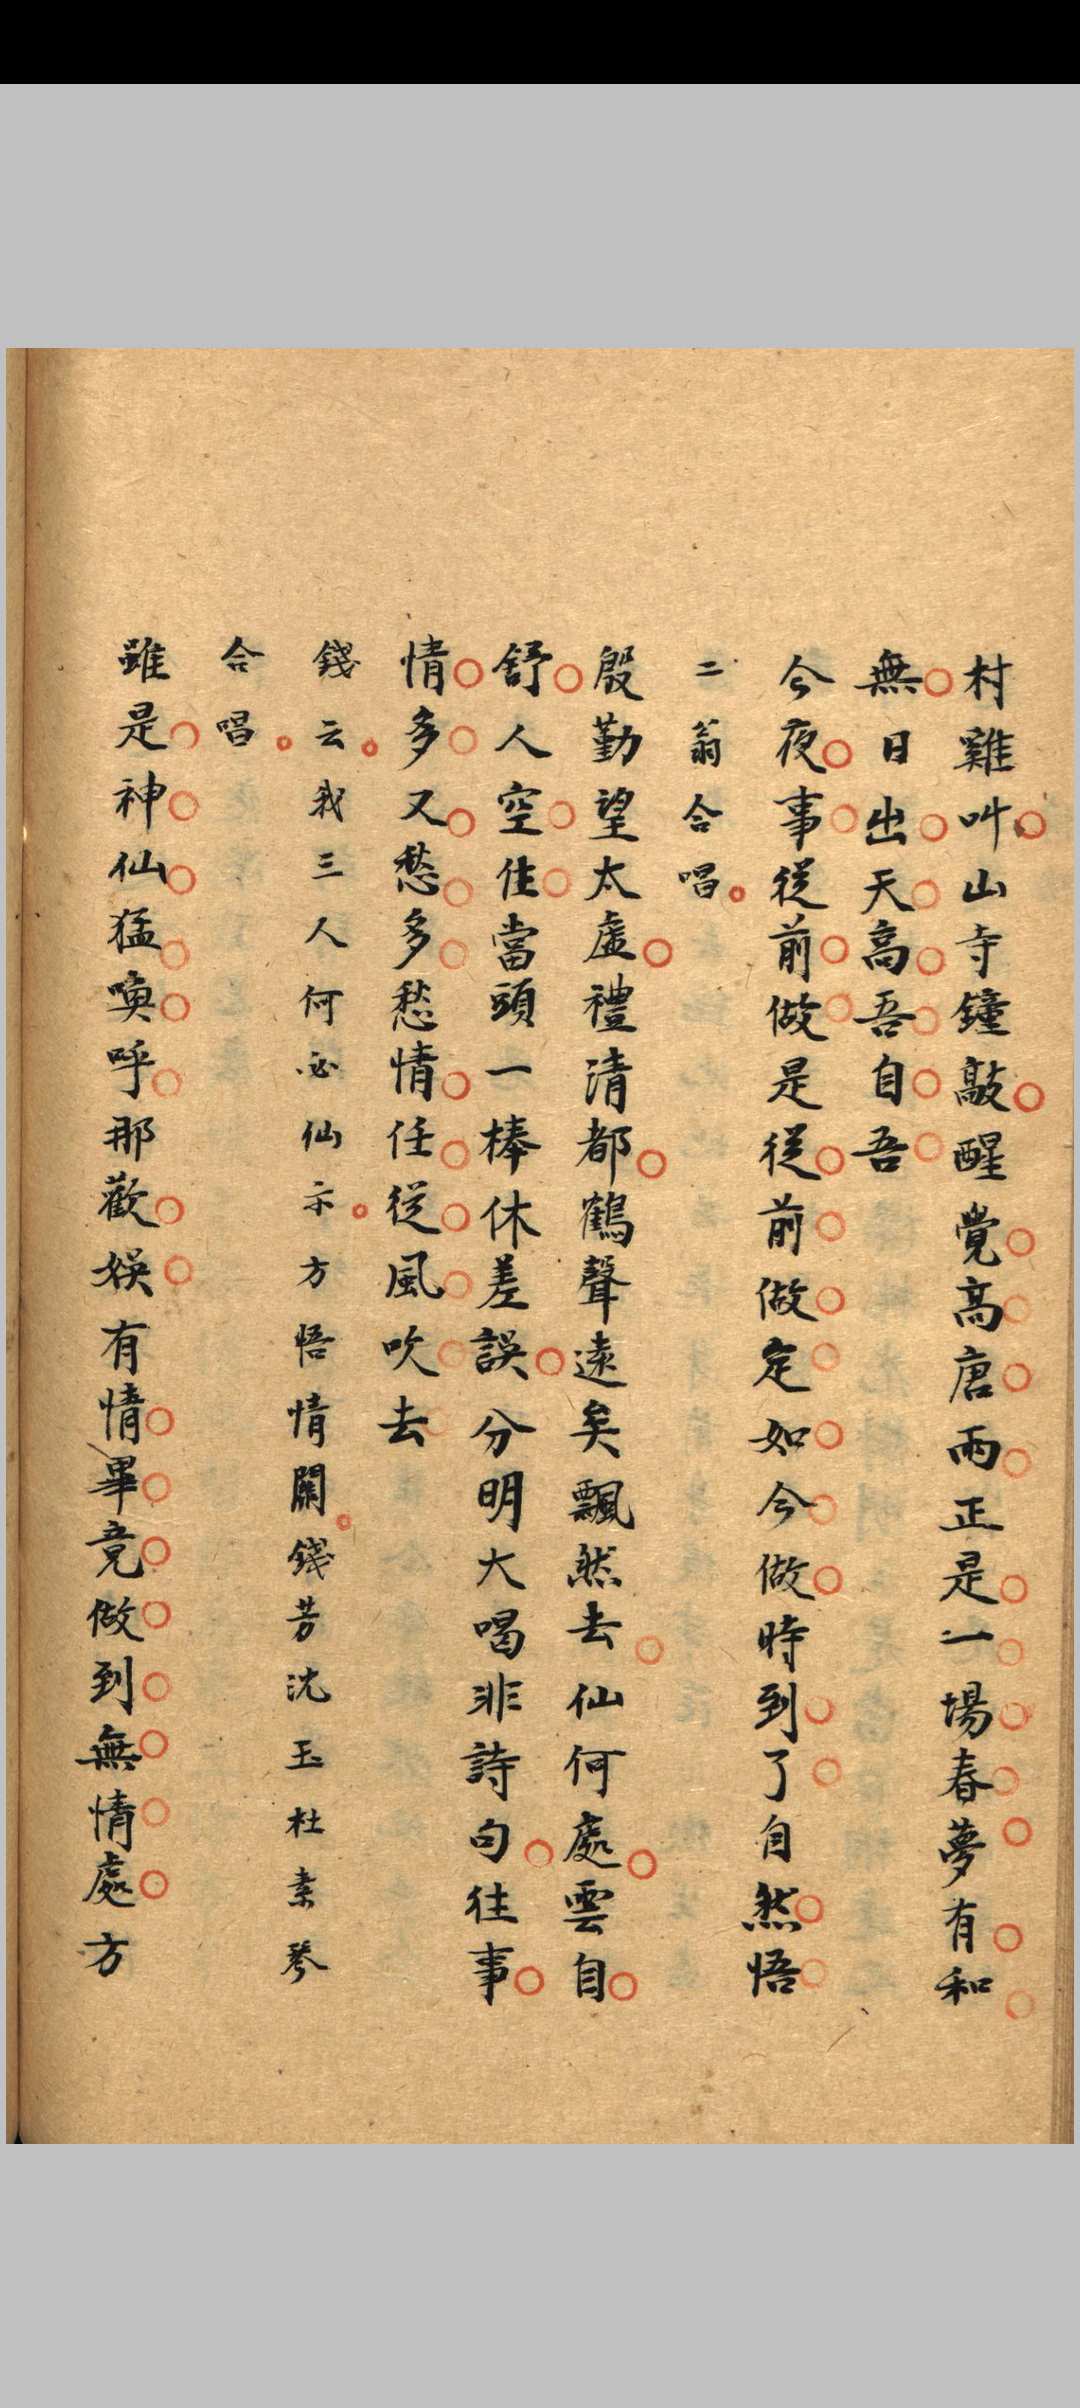 村雞叫山寺鐘敲醒覺高唐雨正是一場春夢有和
無日出天高吾自吾
今夜事從前做是從前做定如今做時到了自然悟
二翁合唱
殷勤望太虛禮清都鶴聲遠矣飄然去仙何處雲自
舒人空佳當頭一棒休差誤分明大喝非詩句往事
情多又愁多愁情任從風吹去
錢云我三人何必仙示方悟情關錢芳沈玉杜素琴
合唱
雖是神仙猛喚呼那歡娛有情畢竟做到無情處方